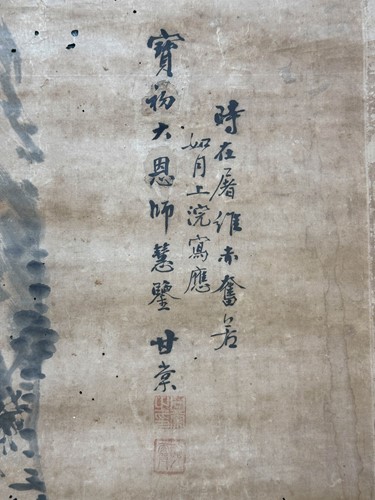 時在屠維赤奮若
如月上浣寫應
寶初大恩師慧鑒 甘棠